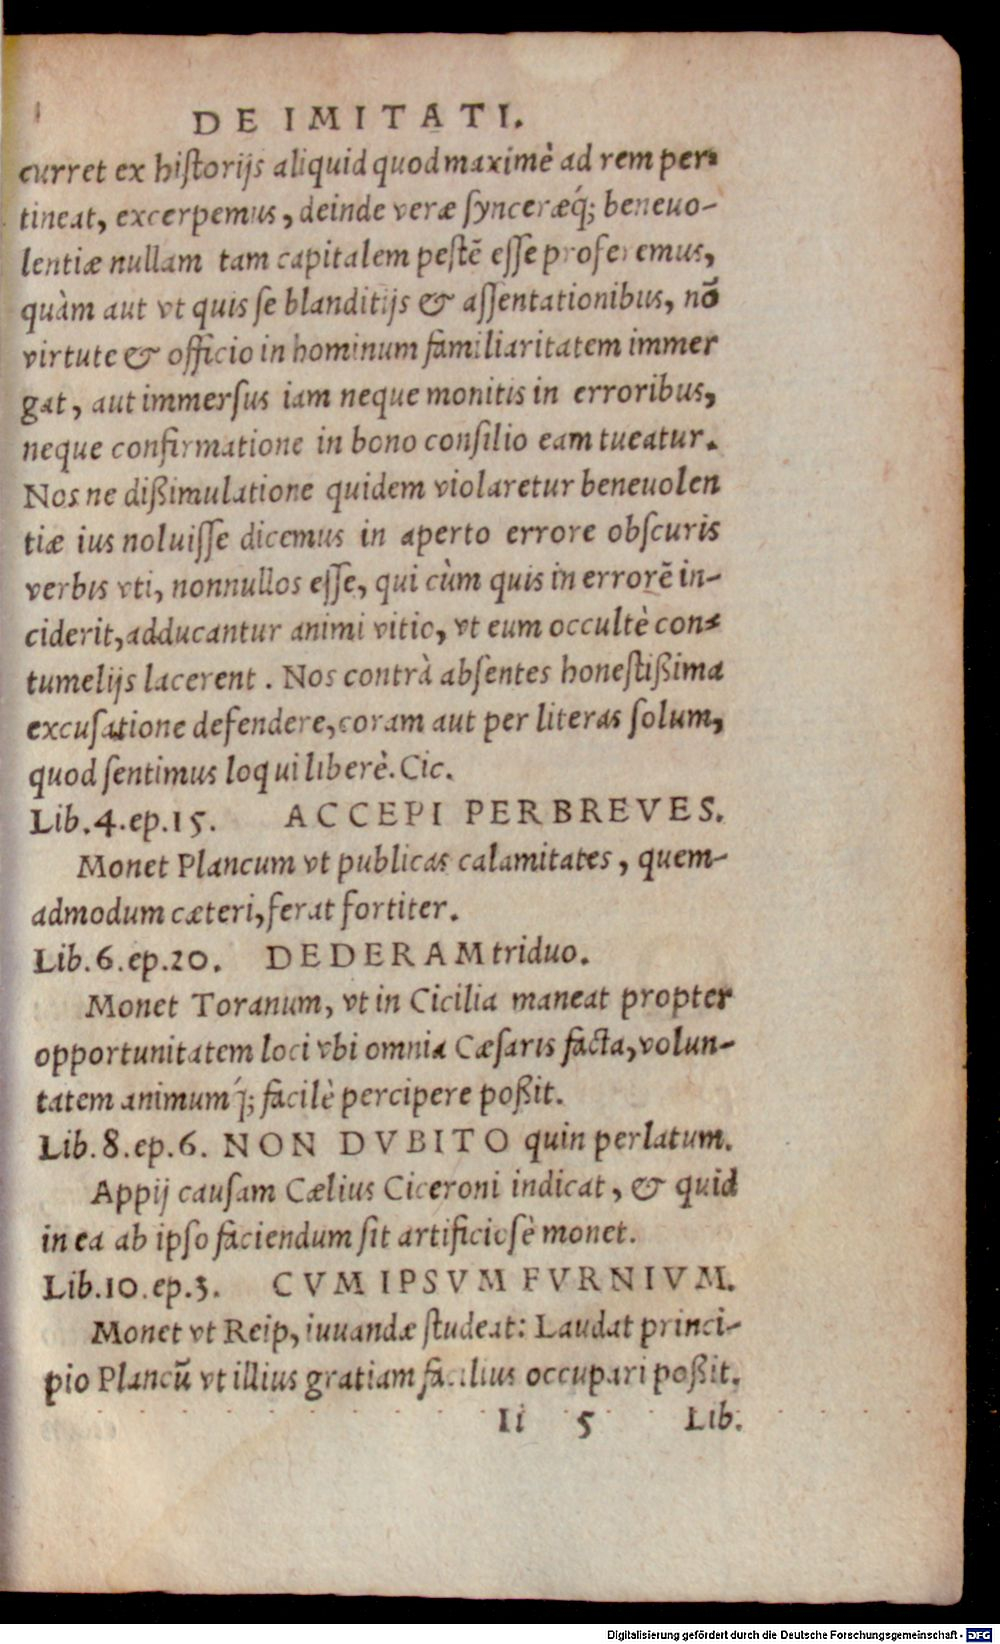 DE IMITATI.
curret ex historijs aliquid quod maximè ad rem per-
tineat, excerpemus, deinde veræ synceræq́; beneuo-
lentiæ nullam tam capitalem pestē esse proferemus,
quàm aut vt quis se blanditijs & assentationibus, nō
virtute & officio in hominum familiaritatem immer
gat, aut immersus iam neque monitis in erroribus,
neque confirmatione in bono consilio eam tueatur.
Nos ne dißimulatione quidem violaretur beneuolen
tiæ ius noluisse dicemus in aperto errore obscuris
verbis vti, nonnullos esse, qui cùm quis in errorē in-
ciderit, adducantur animi vitio, vt eum occultè con-
tumelijs lacerent. Nos contrà absentes honestißima
excusatione defendere, coram aut per literas solum,
quod sentimus loqui liberè. Cic.
Lib. 4. ep. 15. ACCEPI PERBREVES.
Monet Plancum vt publicas calamitates, quem-
admodum cæteri, ferat fortiter.
Lib. 6. ep. 20. DEDERAM triduo.
Monet Toranum, vt in Cicilia maneat propter
opportunitatem loci vbi omnia Cæsaris facta, volun-
tatem animumq́; facilè percipere poßit.
Lib. 8. ep. 6. NON DVBITO quin perlatum.
Appij causam Cælius Ciceroni indicat, & quid
in ea ab ipso faciendum sit artificiosè monet.
Lib. 10. ep. 3. CVM IPSVM FVRNIVM.
Monet vt Reip, iuuandæ studeat: Laudat princi-
pio Plancū vt illius gratiam facilius occupari poßit.
Ii 5 Lib.
Digitalisierung gefördert durch die Deutsche Forschungsgemeinschaft - DFG